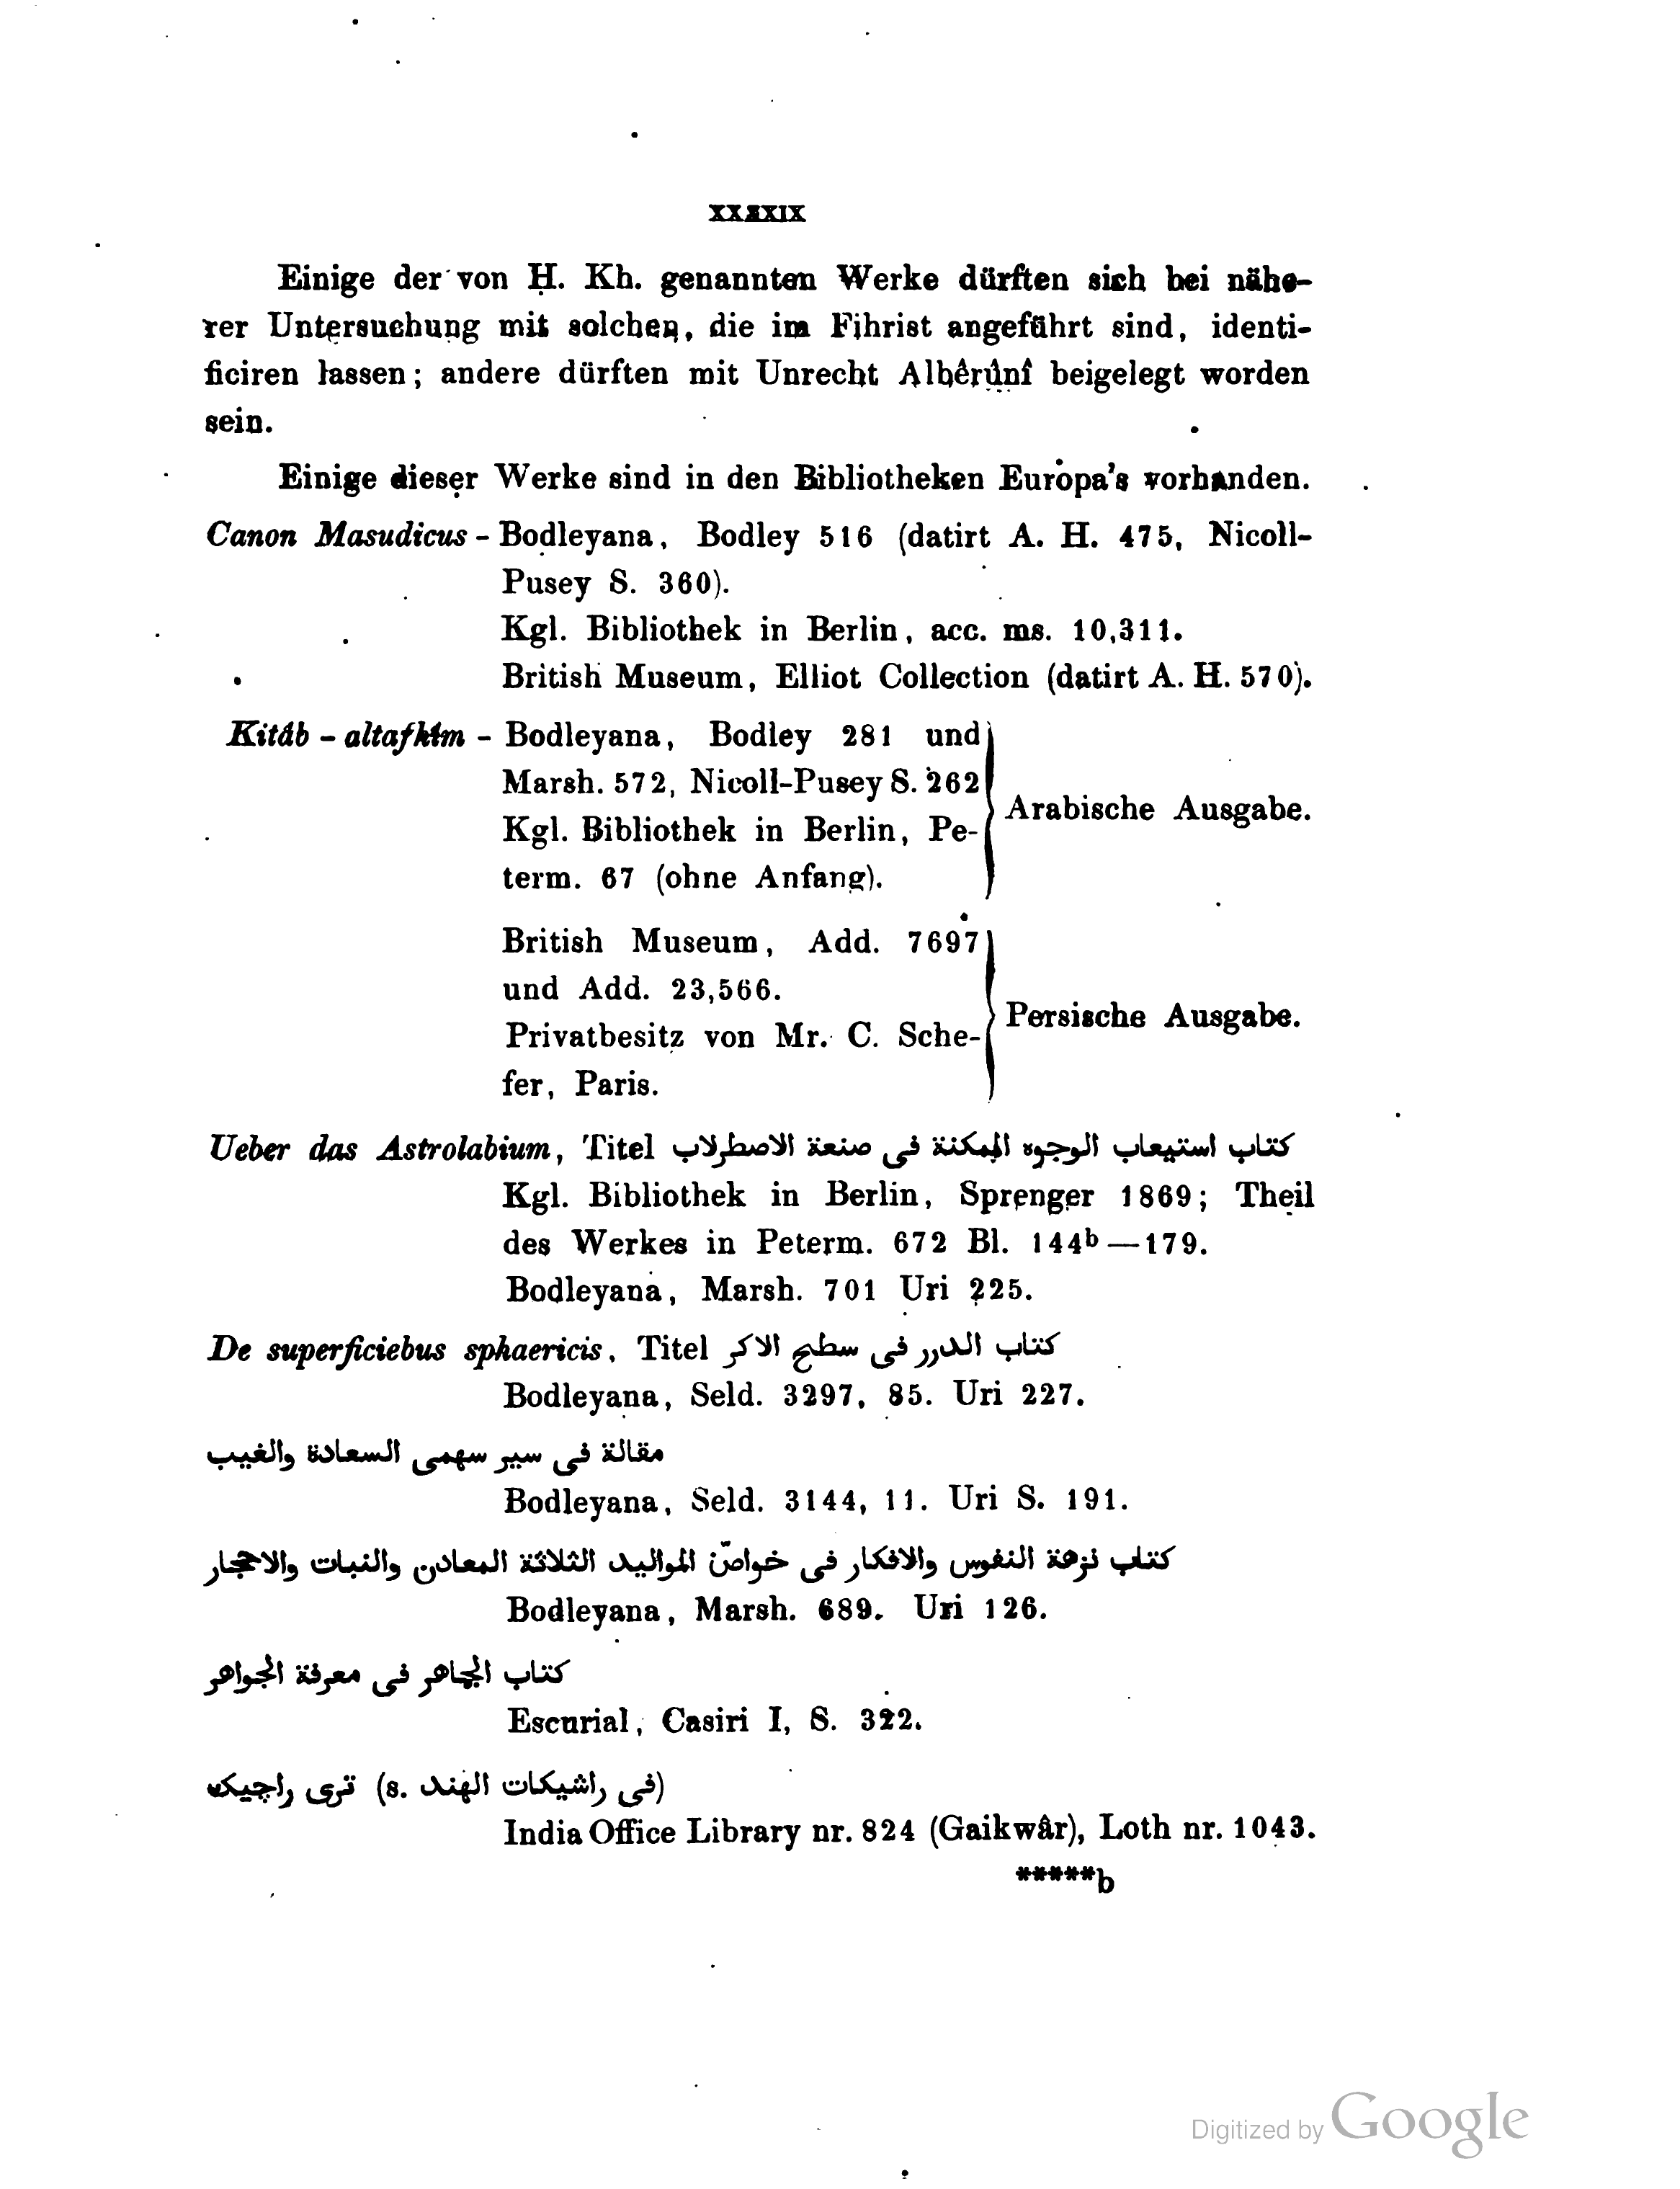 XXXXIX
Einige der von Ḥ. Kh. genannten Werke dürften sich bei nähe-
rer Untersuchung mit solchen, die im Fihrist angeführt sind, identi-
ficiren lassen; andere dürften mit Unrecht Albêrûnî beigelegt worden
sein.
Einige dieser Werke sind in den Bibliotheken Europa's vorhanden.
Canon Masudicus - Bodleyana, Bodley 516 (datirt A. H. 475, Nicoll-
Pusey S. 360).
Kgl. Bibliothek in Berlin, acc. ms. 10,311.
British Museum, Elliot Collection (datirt A. H. 570).
Kitâb-altafhîm - Bodleyana, Bodley 281 und
Marsh. 572, Nicoll-Pusey S. 262
Kgl. Bibliothek in Berlin, Pe-
term. 67 (ohne Anfang).
Arabische Ausgabe.
British Museum, Add. 7697
und Add. 23,566.
Privatbesitz von Mr. C. Sche-
fer, Paris.
Persische Ausgabe.
Ueber das Astrolabium, Titel كتاب استيعاب الوجوه الممكنة فى صنعة الاصطرلاب
Kgl. Bibliothek in Berlin, Sprenger 1869; Theil
des Werkes in Peterm. 672 Bl. 144b—179.
Bodleyana, Marsh. 701 Uri 225.
De superficiebus sphaericis, Titel كتاب الدرر فى سطح الاكر
Bodleyana, Seld. 3297, 85. Uri 227.
مقالة فى سير سهمى السعادة والغيب
Bodleyana, Seld. 3144, 11. Uri S. 191.
كتاب نزهة النفوس والافكار فى خواصّ المواليد الثلاثة المعادن والنبات والاحجار
Bodleyana, Marsh. 689. Uri 126.
كتاب الجماهر فى معرفة الجواهر
Escurial, Casiri I, S. 322.
ترى راچيك (s. فى راشيكات الهند)
India Office Library nr. 824 (Gaikwâr), Loth nr. 1043.
*****b
Digitized by Google